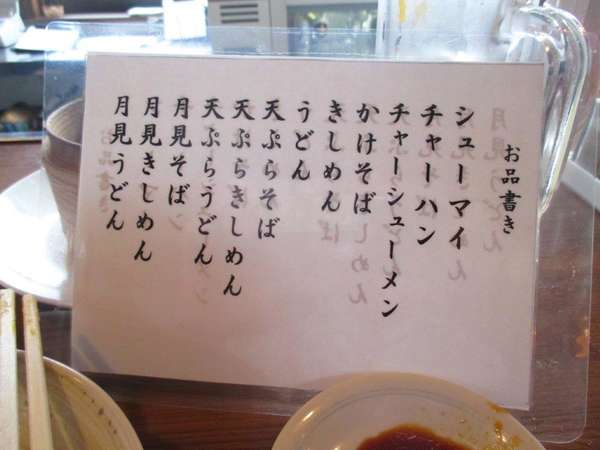 お品書き
シューマイ
チャーハン
チャーシューメン
かけそば
きしめん
うどん
天ぷらそば
天ぷらきしめん
天ぷらうどん
月見そば
月見きしめん
月見うどん